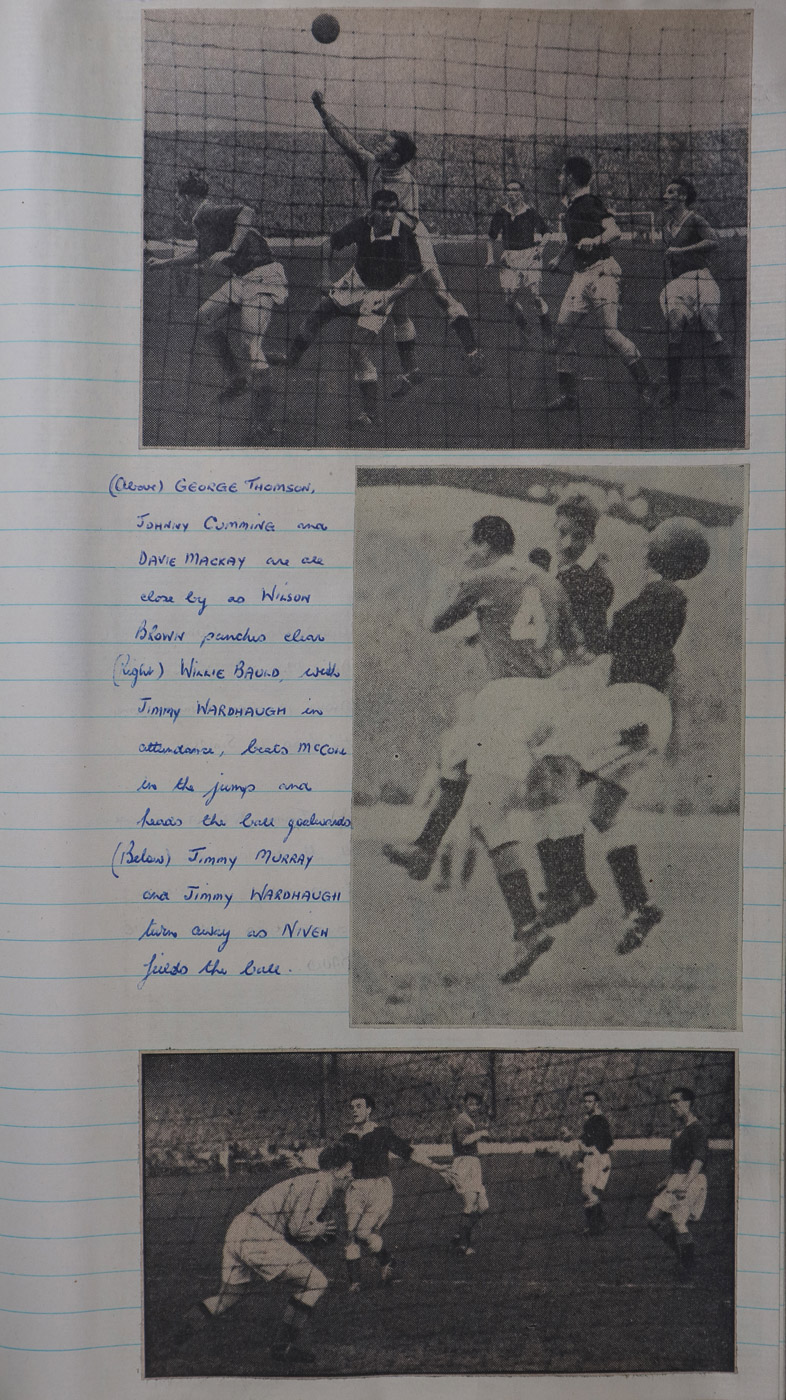 (Above) GEORGE THOMSON,
JOHNNY CUMMING and
DAVIE MACKAY are all
close by as WILSON
BROWN punches clear
(Right) WILLIE BAULD, with
JIMMY WARDHAUGH in
attendance, beats McColl
in the jump and
heads the ball goalwards
(Below) JIMMY MURRAY
and JIMMY WARDHAUGH
turn away as NIVEN
fields the ball.
4